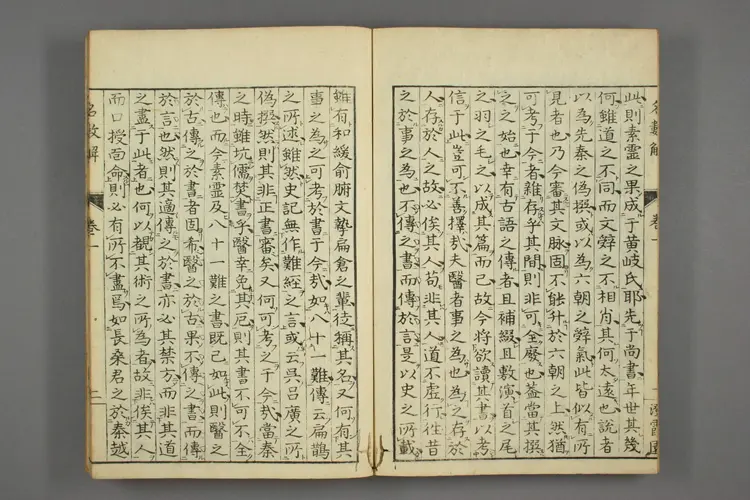 名數解 卷一
此則素靈之果成于黄岐氏耶先于尚書年世其幾
何雖道之不同而文辤之不相肖其何太遠也説者
以爲先秦之偽撰或以爲六朝之辤氣此皆似有所
見者也乃今審其文脉固不能升於六朝之上然猶
可考于今者雜存乎其間則非可全廢也葢當其撰
之之始也幸有古語之傳者且補綴且敷演首之尾
之羽之毛之以成其篇而已故今將欲讀其書以考
信于此豈可不善擇哉夫醫者事之爲也爲之存於
人存於人之故必俟其人苟非其人道不虚行徃昔
之於事之爲也不傳之書而傳於言是以史之所載
雖有和緩俞腑文摯扁倉之輩徒稱其名又何有其
事之爲之可考於書于今哉如八十一難傳云扁鵲
之所述雖然史記無作難經之言或云呉呂廣之所
偽撰然則其非正書審矣又何可考之于今哉當秦
之時雖坑儒焚書乎醫幸免其厄則其書不可不全
傳也而今素靈及八十一難之書既已如此則醫之
於古傳之於書者固希醫之於古果不傳之書而傳
於言也然則其適傳之於書亦必其禁方而非其道
之盡于此者也何以觀其術之所爲者故非俟其人
而口授面命則必有所不盡焉如長桑君之於秦越
名數解 卷一 二